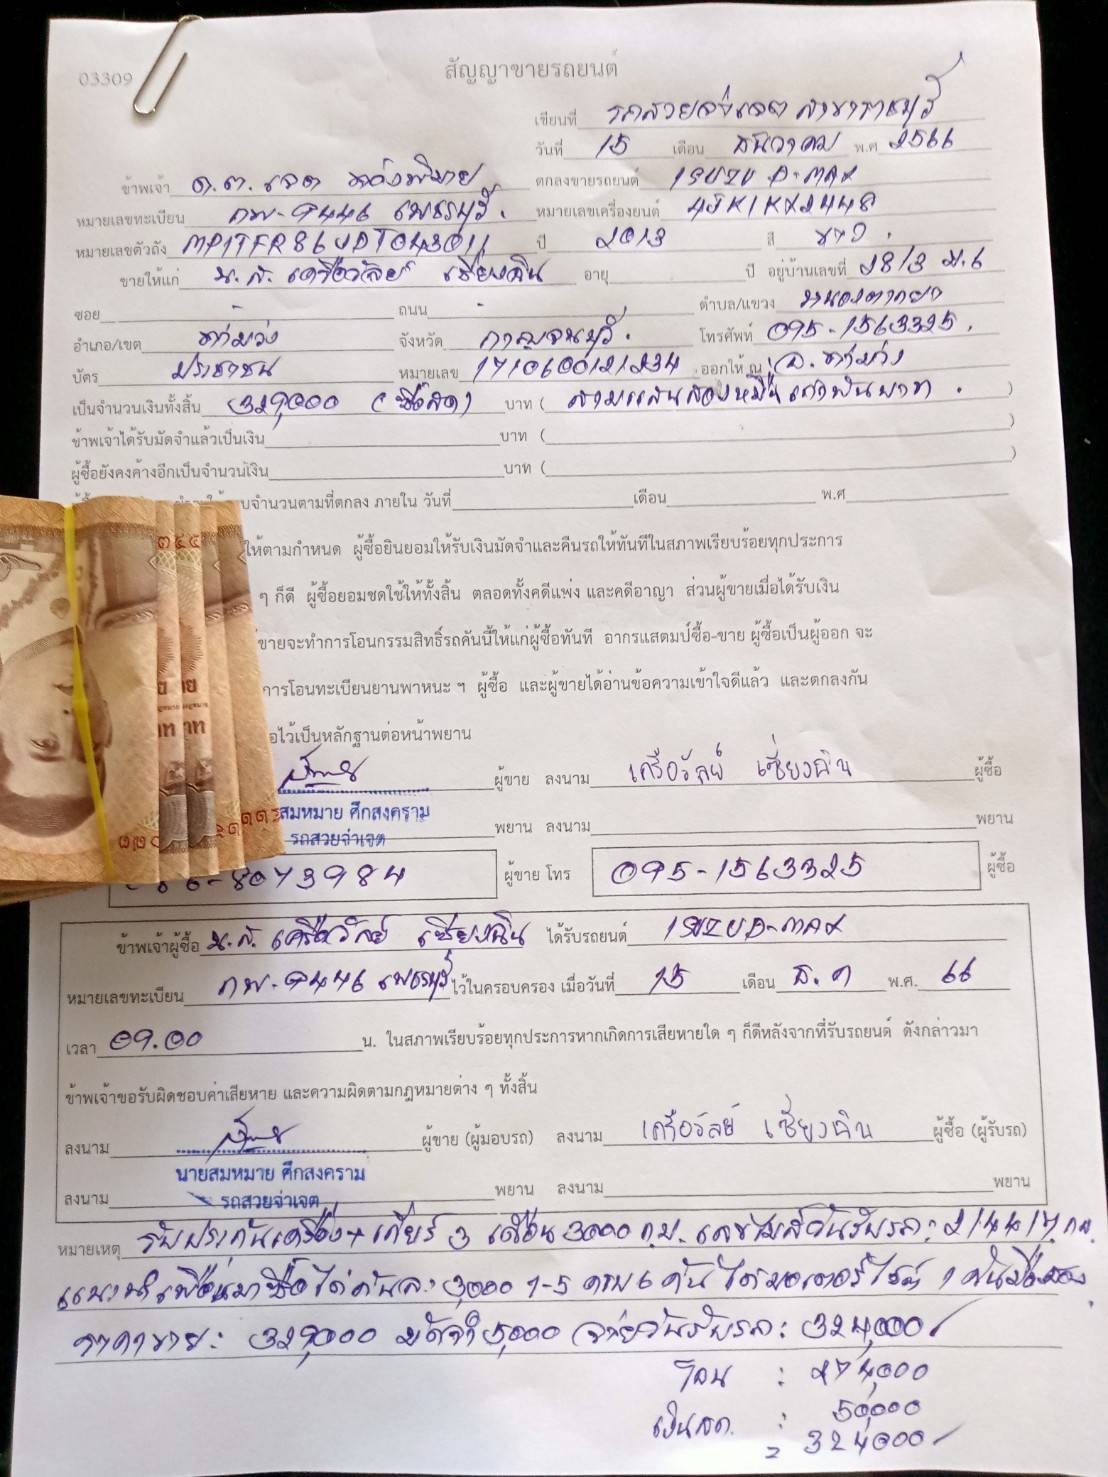 03309
สัญญาขายรถยนต์
เขียนที่ รถสวยจ่าเจต สาขาราชบุรี
วันที่ 15 เดือน ธันวาคม พ.ศ 2566
ข้าพเจ้า ด.ต. เจต ตกลงขายรถยนต์ ISUZU D-MAX
หมายเลขทะเบียน กพ-9446 เพชรบุรี. หมายเลขเครื่องยนต์ 4JK1KX2448
หมายเลขตัวถัง MP1TFR86UDT043011 ปี 2013 สี ขาว.
ขายให้แก่ น.ส. เครือวัลย์ เซี่ยงฉิน อายุ ปี อยู่บ้านเลขที่ 28/3 ม.6
ซอย - ถนน - ตำบล/แขวง หนองตากยา
อำเภอ/เขต ท่าม่วง จังหวัด กาญจนบุรี. โทรศัพท์ 095-1563325.
บัตร ประชาชน หมายเลข 1710600121234 ออกให้ ณ อ. ท่าม่วง
เป็นจำนวนเงินทั้งสิ้น 329,000 (ซื้อสด) บาท ( สามแสนสองหมื่นเก้าพันบาท. )
ข้าพเจ้าได้รับมัดจำแล้วเป็นเงิน บาท ( )
ผู้ซื้อยังคงค้างอีกเป็นจำนวนเงิน บาท ( )
บจำนวนตามที่ตกลง ภายใน วันที่ เดือน พ.ศ
ให้ตามกำหนด ผู้ซื้อยินยอมให้รับเงินมัดจำและคืนรถให้ทันทีในสภาพเรียบร้อยทุกประการ
ๆ ก็ดี ผู้ซื้อยอมชดใช้ให้ทั้งสิ้น ตลอดทั้งคดีแพ่ง และคดีอาญา ส่วนผู้ขายเมื่อได้รับเงิน
ขายจะทำการโอนกรรมสิทธิ์รถคันนี้ให้แก่ผู้ซื้อทันที อากรแสตมป์ซื้อ-ขาย ผู้ซื้อเป็นผู้ออก จะ
การโอนทะเบียนยานพาหนะ ฯ ผู้ซื้อ และผู้ขายได้อ่านข้อความเข้าใจดีแล้ว และตกลงกัน
อไว้เป็นหลักฐานต่อหน้าพยาน
ผู้ขาย ลงนาม เครือวัลย์ เซี่ยงฉิน ผู้ซื้อ
สมหมาย ศึกสงคราม
รถสวยจ่าเจต
พยาน ลงนาม พยาน
6-8073984 ผู้ขาย โทร 095-1563325 ผู้ซื้อ
ข้าพเจ้าผู้ซื้อ น.ส. เครือวัลย์ เซี่ยงฉิน ได้รับรถยนต์ ISUZU D-MAX
หมายเลขทะเบียน กพ-9446 เพชรบุรี ไว้ในครอบครอง เมื่อวันที่ 15 เดือน ธ.ค พ.ศ. 66
เวลา 09.00 น. ในสภาพเรียบร้อยทุกประการหากเกิดการเสียหายใด ๆ ก็ดีหลังจากที่รับรถยนต์ ดังกล่าวมา
ข้าพเจ้าขอรับผิดชอบค่าเสียหาย และความผิดตามกฎหมายต่าง ๆ ทั้งสิ้น
ลงนาม ผู้ขาย (ผู้มอบรถ) ลงนาม เครือวัลย์ เซี่ยงฉิน ผู้ซื้อ (ผู้รับรถ)
นายสมหมาย ศึกสงคราม
รถสวยจ่าเจต
ลงนาม พยาน ลงนาม พยาน
หมายเหตุ รับประกันเครื่อง+เกียร์ 3 เดือน 3000 กม. เลขไมล์วันรับรถ: 214417 กม.
แนะนำเพื่อนมาซื้อได้คันละ 3,000 1-5 ครบ 6 คัน ได้มอเตอร์ไซค์ 1 คันมือสอง.
ราคาขาย: 329,000 มัดจำ 5,000 จ่ายวันรับรถ: 324,000
โอน : 274,000
เงินสด. : 50,000
= 324,000